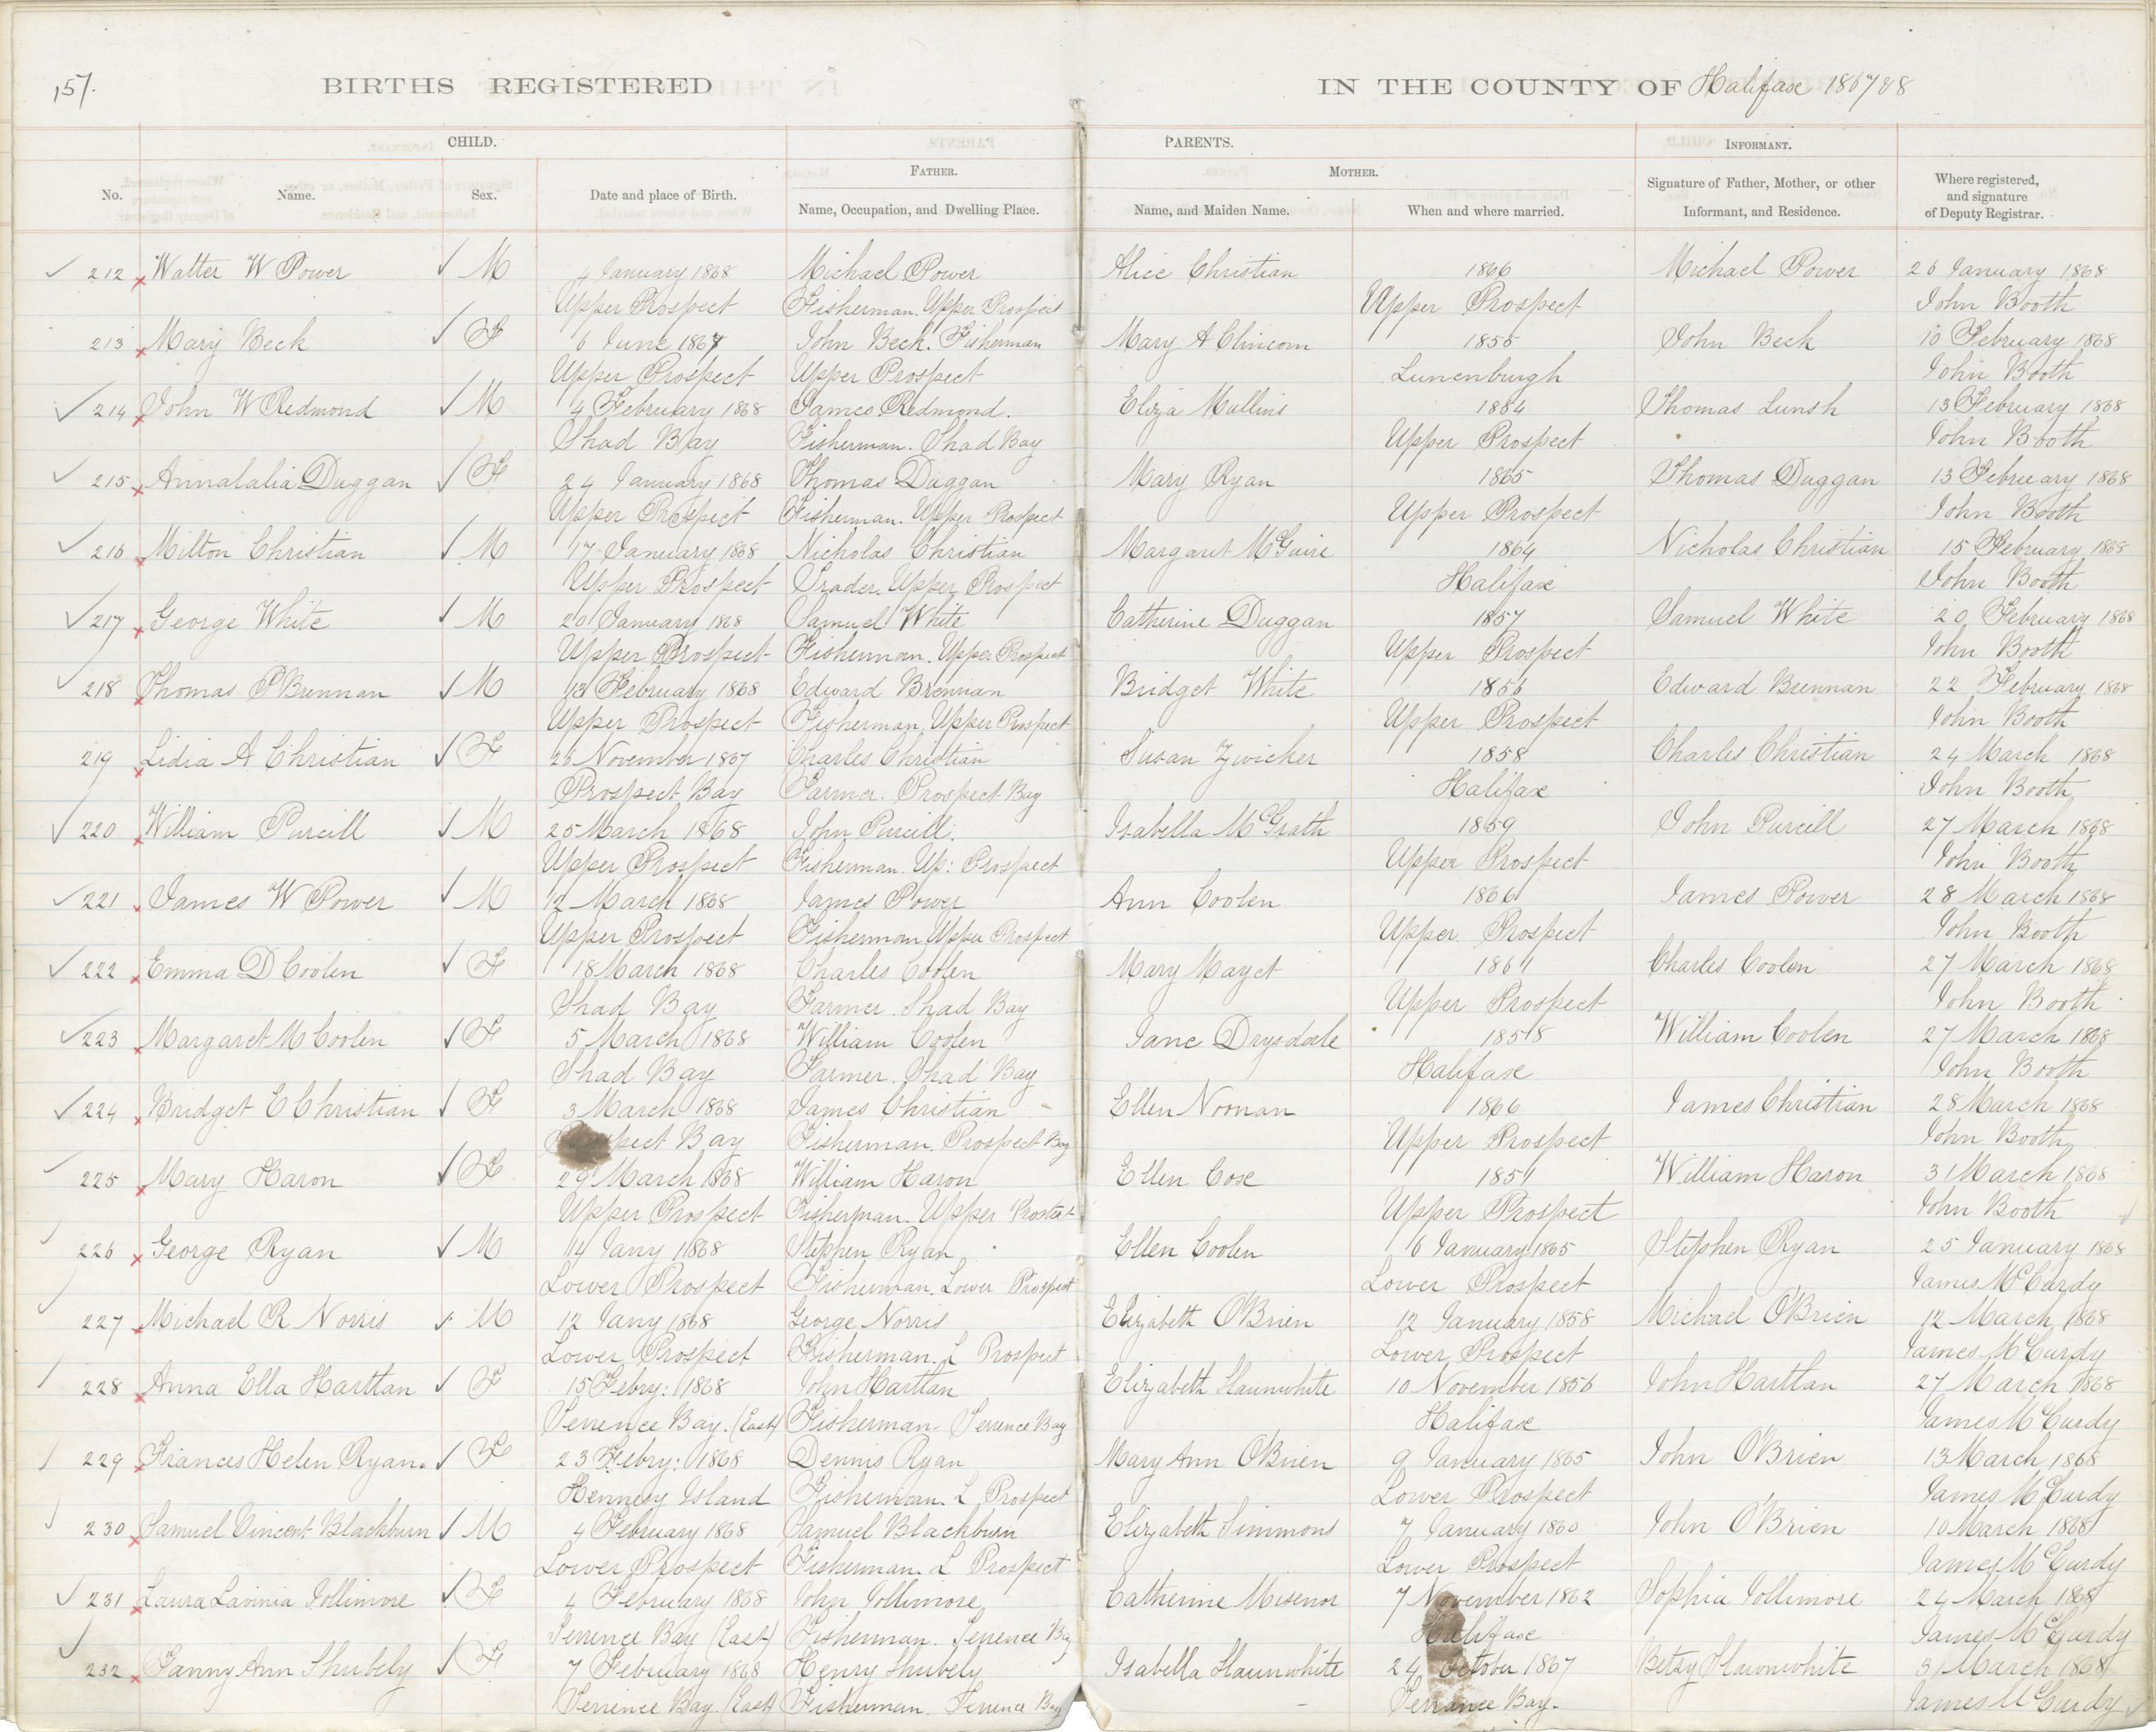 157.
BIRTHS REGISTERED IN THE COUNTY OF Halifax 1867 & 8
CHILD. PARENTS. INFORMANT.
FATHER. MOTHER.
No. Name. Sex. Date and place of Birth. Name, Occupation, and Dwelling Place. Name, and Maiden Name. When and where married. Signature of Father, Mother, or other Informant, and Residence. Where registered, and signature of Deputy Registrar.
212 Walter W Power M 4 January 1868 Michael Power Alice Christian 1866 Michael Power 26 January 1868
Upper Prospect Fisherman. Upper Prospect Upper Prospect John Booth
213 Mary Beck F 6 June 1867 John Beck. Fisherman Mary A Clincorn 1855 John Beck 10 February 1868
Upper Prospect Upper Prospect Lunenburgh John Booth
214 John W Redmond M 4 February 1868 James Redmond. Eliza Mullins 1864 Thomas Lunsh 13 February 1868
Shad Bay Fisherman. Shad Bay Upper Prospect John Booth
215 Annalalia Duggan F 24 January 1868 Thomas Duggan Mary Ryan 1865 Thomas Duggan 13 February 1868
Upper Prospect Fisherman. Upper Prospect Upper Prospect John Booth
216 Milton Christian M 17 January 1868 Nicholas Christian Margaret McGuire 1864 Nicholas Christian 15 February 1868
Upper Prospect Trader. Upper Prospect Halifax John Booth
217 George White M 20 January 1868 Samuel White Catherine Duggan 1857 Samuel White 20 February 1868
Upper Prospect Fisherman. Upper Prospect Upper Prospect John Booth
218 Thomas P Brennan M 13 February 1868 Edward Brennan Bridget White 1856 Edward Brennan 22 February 1868
Upper Prospect Fisherman, Upper Prospect Upper Prospect John Booth
219 Lidia A Christian F 26 November 1867 Charles Christian Susan Zwicker 1858 Charles Christian 24 March 1868
Prospect Bay Farmer. Prospect Bay Halifax John Booth
220 William Purcill M 25 March 1868 John Purcill. Isabella McGrath 1859 John Purcill 27 March 1868
Upper Prospect Fisherman. Up: Prospect Upper Prospect John Booth
221 James W Power M 12 March 1868 James Power Ann Coolen 1866 James Power 28 March 1868
Upper Prospect Fisherman, Upper Prospect Upper Prospect John Booth
222 Emma D Coolen F 18 March 1868 Charles Coolen Mary Mayet 1861 Charles Coolen 27 March 1868
Shad Bay Farmer. Shad Bay Upper Prospect John Booth
223 Margaret M Coolen F 5 March 1868 William Coolen Jane Drysdale 1858 William Coolen 27 March 1868
Shad Bay Farmer. Shad Bay Halifax John Booth
224 Bridget E Christian F 3 March 1868 James Christian Ellen Noonan 1866 James Christian 28 March 1868
Prospect Bay Fisherman. Prospect Bay Upper Prospect John Booth
225 Mary Haron F 29 March 1868 William Haron Ellen Cox 1851 William Haron 31 March 1868
Upper Prospect Fisherman. Upper Prospect Upper Prospect John Booth
226 George Ryan M 14 Jany 1868 Stephen Ryan Ellen Coolen 6 January 1865 Stephen Ryan 25 January 1868
Lower Prospect Fisherman. Lower Prospect Lower Prospect James McCurdy
227 Michael R Norris M 12 Jany 1868 George Norris Elizabeth O'Brien 12 January 1858 Michael O'Brien 12 March 1868
Lower Prospect Fisherman. L Prospect Lower Prospect James McCurdy
228 Anna Ella Harttan F 15 Febry: 1868 John Harttan Elizabeth Slaunwhite 10 November 1856 John Harttan 27 March 1868
Terrence Bay. (East) Fisherman Terrence Bay Halifax James McCurdy
229 Frances Helen Ryan. F 23 Febry: 1868 Dennis Ryan Mary Ann O'Brien 9 January 1865 John O'Brien 13 March 1868
Hennesy Island Fisherman. L Prospect Lower Prospect James McCurdy
230 Samuel Vincent Blackburn M 4 February 1868 Samuel Blackburn Elizabeth Simmons 7 January 1860 John O'Brien 10 March 1868
Lower Prospect Fisherman. L Prospect Lower Prospect James McCurdy
231 Laura Lavinia Jollimore F 4 February 1868 John Jollimore Catherine Misenor 7 November 1862 Sophia Jollimore 24 March 1868
Terrence Bay (East) Fisherman. Terrence Bay Halifax James McCurdy
232 Fanny Ann Shubely F 7 February 1868 Henry Shubely Isabella Slaunwhite 24 October 1867 Betsy Slaunwhite 31 March 1868
Terrence Bay. (East) Fisherman. Terrence Bay Terrance Bay. James McCurdy